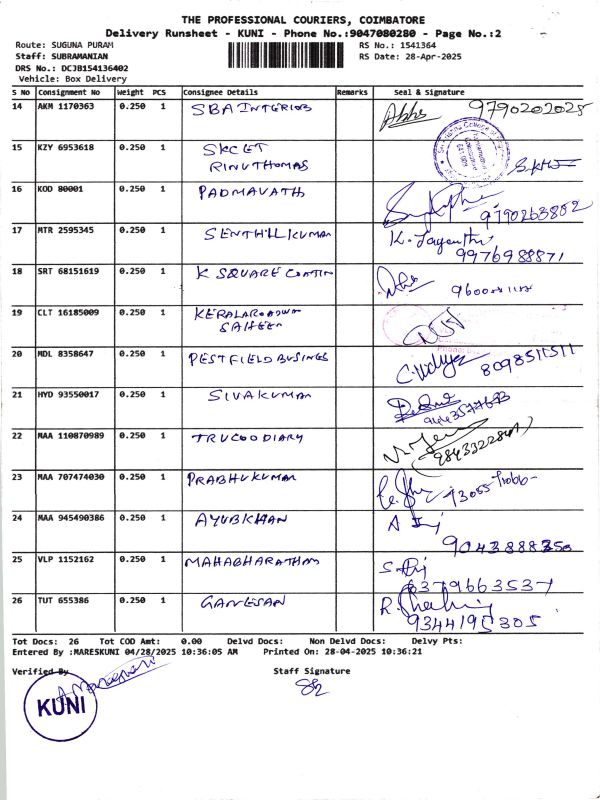 THE PROFESSIONAL COURIERS, COIMBATORE
Delivery Runsheet - KUNI - Phone No.:9047080280 - Page No.:2
Route: SUGUNA PURAM
Staff: SUBRAMANIAN
DRS No.: DCJB154136402
Vehicle: Box Delivery
RS No.: 1541364
RS Date: 28-Apr-2025
S No Consignment No Weight PCS Consignee Details Remarks Seal & Signature
14 AKM 1170363 0.250 1 SBA INTERIOS 9790202025
15 KZY 6953618 0.250 1 SKCET
RINUTHOMAS
16 KOD 80001 0.250 1 PADMAVATH 9790263882
17 MTR 2595345 0.250 1 SENTHILKUMAR K. Jayanthi
9976988871
18 SRT 68151619 0.250 1 K SQUARE
19 CLT 16185009 0.250 1
SAHEER
20 MDL 8358647 0.250 1 PESTFIELD BUSINGS C. Vidhya 8098511511
21 HYD 93550017 0.250 1 SIVAKUMAR
22 MAA 110870989 0.250 1 TRUCOODIARY
23 MAA 707474030 0.250 1 PRABHUKUMAR
24 MAA 945490386 0.250 1 AYUBKHAN
25 VLP 1152162 0.250 1 MAHABHARATHAM
6379663537
26 TUT 655386 0.250 1 GANESAN
9344195305
Tot Docs: 26 Tot COD Amt: 0.00 Delvd Docs: Non Delvd Docs: Delvy Pts:
Entered By :MARESKUNI 04/28/2025 10:36:05 AM Printed On: 28-04-2025 10:36:21
Verified By Staff Signature
KUNI